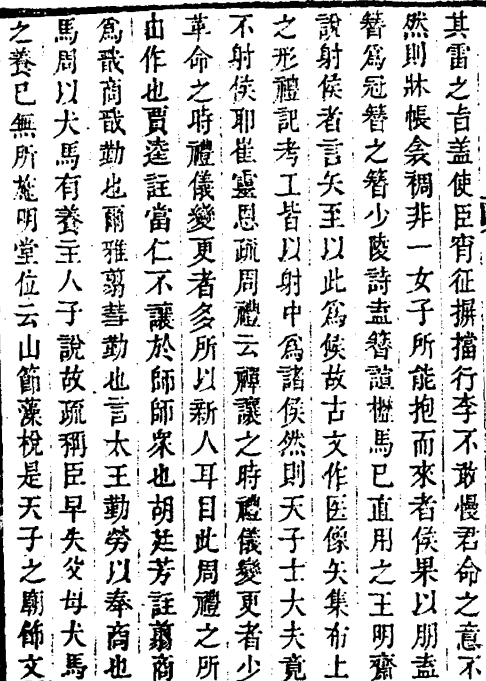 其雷之旨盖使臣宵征摒擋行李不敢慢君命之意不
然則牀帳衾裯非一女子所能抱而來者侯果以朋盍
簪爲冠簪之簪少陵詩盍簪諠櫪馬已直用之王明齋
說射侯者言矢至以此爲侯故古文作医像矢集布上
之形禮記考工皆以射中爲諸侯然則天子士大夫竟
不射侯耶崔靈恩疏周禮云禪讓之時禮儀變更者少
革命之時禮儀變更者多所以新人耳目此周禮之所
由作也賈逵註當仁不讓於師師衆也胡廷芳註翦商
爲戩商戩勤也爾雅翦篲勤也言太王勤勞以奉商也
馬周以犬馬有養主人子說故疏稱臣早失父母犬馬
之養已無所施明堂位云山節藻梲是天子之廟飾文